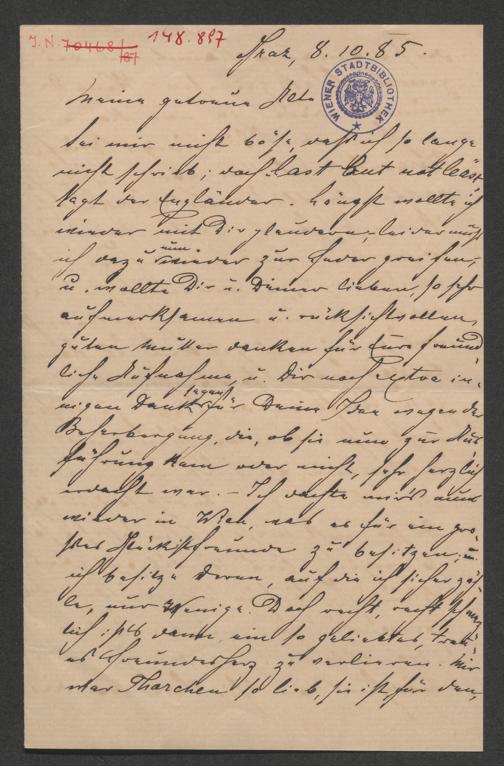 J. N. 70468/87 148.897
WIENER STADTBIBLIOTHEK
Graz, 8.10.85.
Meine getreue Alte
Sei mir nicht böse, daß ich so lange
nicht schrieb; doch last but not least
sagt der Engländer. Längst wollte ich
wieder mit Dir plaudern, leider muß
ich dazu nun wieder zur Feder greifen;
u. wollte Dir u. Deiner lieben, so sehr
aufmerksamen u. rücksichtsvollen,
guten Mutter danken für Eure freund
liche Aufnahme, u. Dir noch Extra in-
nigen Dank sagen für Deine Idee wegen der
Beherbergung, die, ob sie nun zur Aus
führung kam oder nicht, sehr herzlich
erdacht war. – Ich dachte mir's nun
wieder in Wien, was es für ein gro-
ßes Glück ist Freunde zu besitzen; u.
ich besitze deren, auf die ich sicher zäh-
le, nur Wenige. Doch recht, recht schmerz
lich ist's dann, ein so geliebtes, treu-
es Freundesherz zu verlieren. Mir
war Tharchen so lieb, sie ist für den,